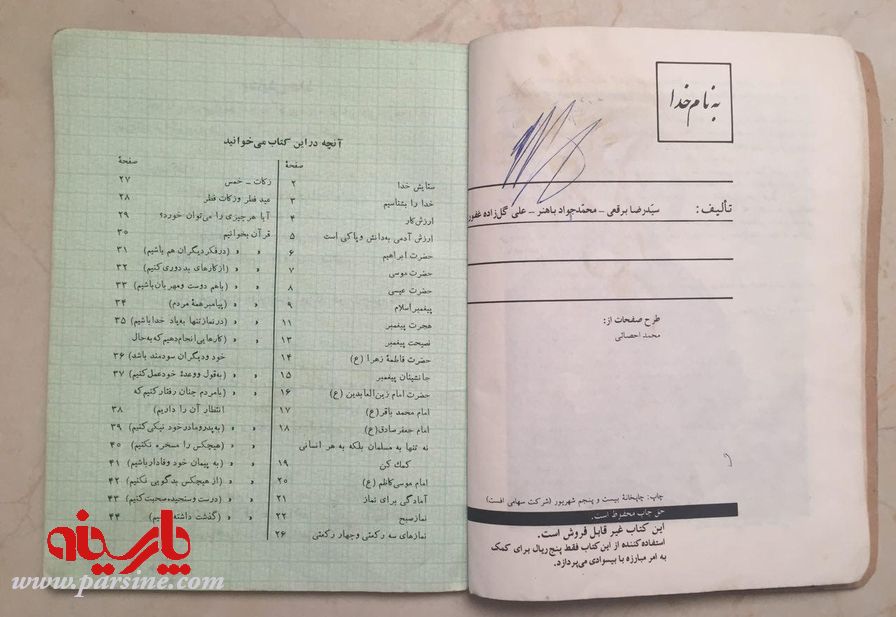 به نام خدا
تألیف: سیّدرضا برقعی – محمّدجواد باهنر – علی گل‌زاده غفور
طرح صفحات از:
محمد احصائی
چاپ: چاپخانهٔ بیست و پنجم شهریور (شرکت سهامی افست)
حق چاپ محفوظ است.
این کتاب غیر قابل فروش است.
استفاده‌کننده از این کتاب فقط پنج‌ریال برای کمک
به امر مبارزه با بیسوادی می‌پردازد.
آنچه در این کتاب می‌خوانید
صفحهٔ
ستایش خدا ۲
خدا را بشناسیم ۳
ارزش‌کار ۴
ارزش آدمی به‌دانش و پاکی است ۵
حضرت ابراهیم ۶
حضرت موسی ۷
حضرت عیسی ۸
پیغمبر اسلام ۹
هجرت پیغمبر ۱۱
نصیحت پیغمبر ۱۳
حضرت فاطمهٔ زهرا (ع) ۱۴
جانشینان پیغمبر ۱۵
حضرت امام زین‌العابدین (ع) ۱۶
امام محمد باقر(ع) ۱۷
امام جعفر صادق(ع) ۱۸
نه تنها به مسلمان بلکه به هر انسانی
کمک کن ۱۹
امام موسی‌کاظم (ع) ۲۰
آمادگی برای نماز ۲۱
نماز صبح ۲۲
نمازهای سه رکعتی و چهار رکعتی ۲۶
صفحهٔ
زکات – خمس ۲۷
عید فطر و زکات فطر ۲۸
آیا هر چیزی را می‌توان خورد؟ ۲۹
قرآن بخوانیم ۳۰
» » (در فکر دیگران هم باشیم) ۳۱
» » (از کارهای بد دوری کنیم) ۳۲
» » (باهم دوست و مهربان باشیم) ۳۳
» » (پیامبر همهٔ مردم) ۳۴
» » (در نماز تنها به‌یاد خدا باشیم) ۳۵
» » (کارهایی انجام‌دهیم که به‌حال
خود و دیگران سودمند باشد) ۳۶
» » (به‌قول و وعدهٔ خود عمل کنیم) ۳۷
» » (بامردم چنان رفتار کنیم‌که
انتظار آن را داریم) ۳۸
» » (به‌پدر و مادر خود نیکی کنیم) ۳۹
» » (هیچکس را مسخره نکنیم) ۴۰
» » (به پیمان خود وفادار باشیم) ۴۱
» » (از هیچکس بدگویی نکنیم) ۴۲
» » (درست و سنجیده صحبت کنیم) ۴۳
» » (گذشت داشته باشیم) ۴۴
پارسینه
www.parsine.com